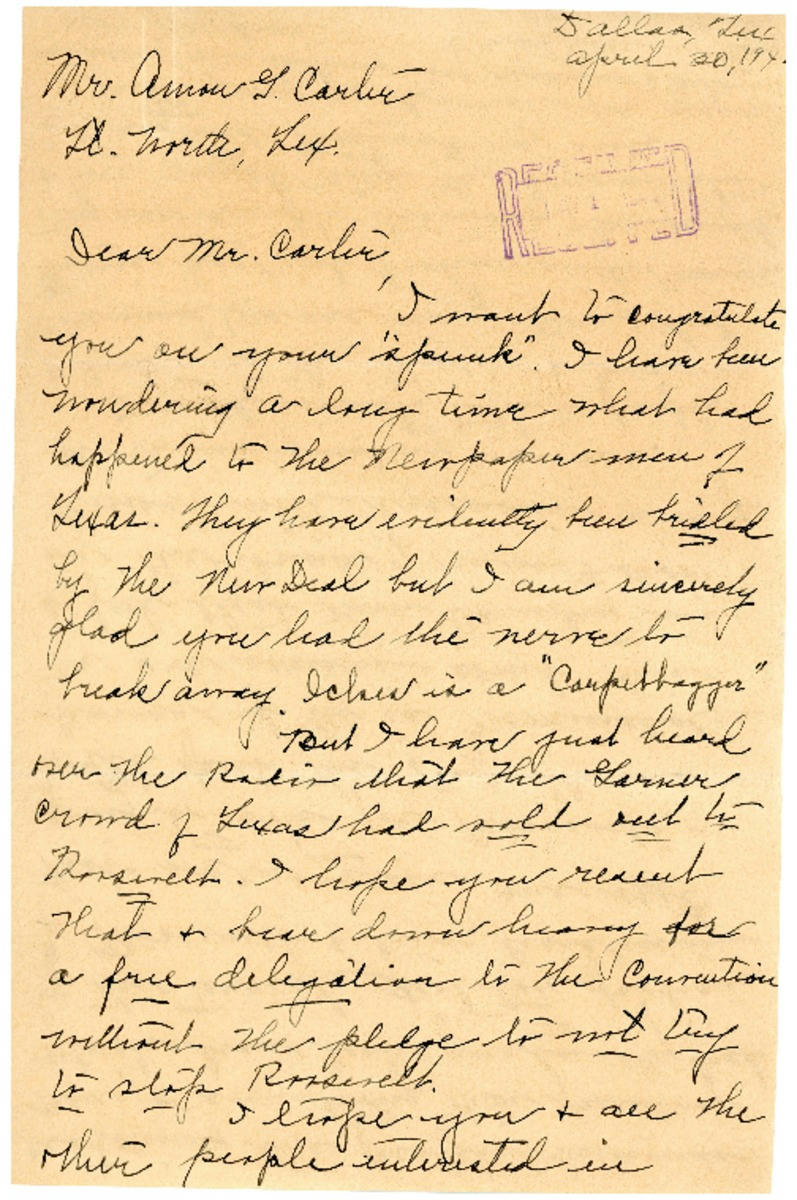 Dallas, Tex
April 30, 194
Mr. Amon G. Carter
Ft. Worth, Tex.
RECEIVED
Dear Mr. Carter,
I want to congratulate
you on your "spunk". I have been
wondering a long time what had
happened to the Newpaper men of
Texas. They have evidently been bridled
by the New Deal but I am sincerely
glad you had the nerve to
break away. Ickes is a "Carpetbagger"
But I have just heard
over the Radio that the Garner
crowd of Texas had sold out to
Roosevelt. I hope you resent
that & bear down heavy for
a free delegation to the Convention
without the pledge to not try
to stop Roosevelt.
I hope you & all the
other people interested in